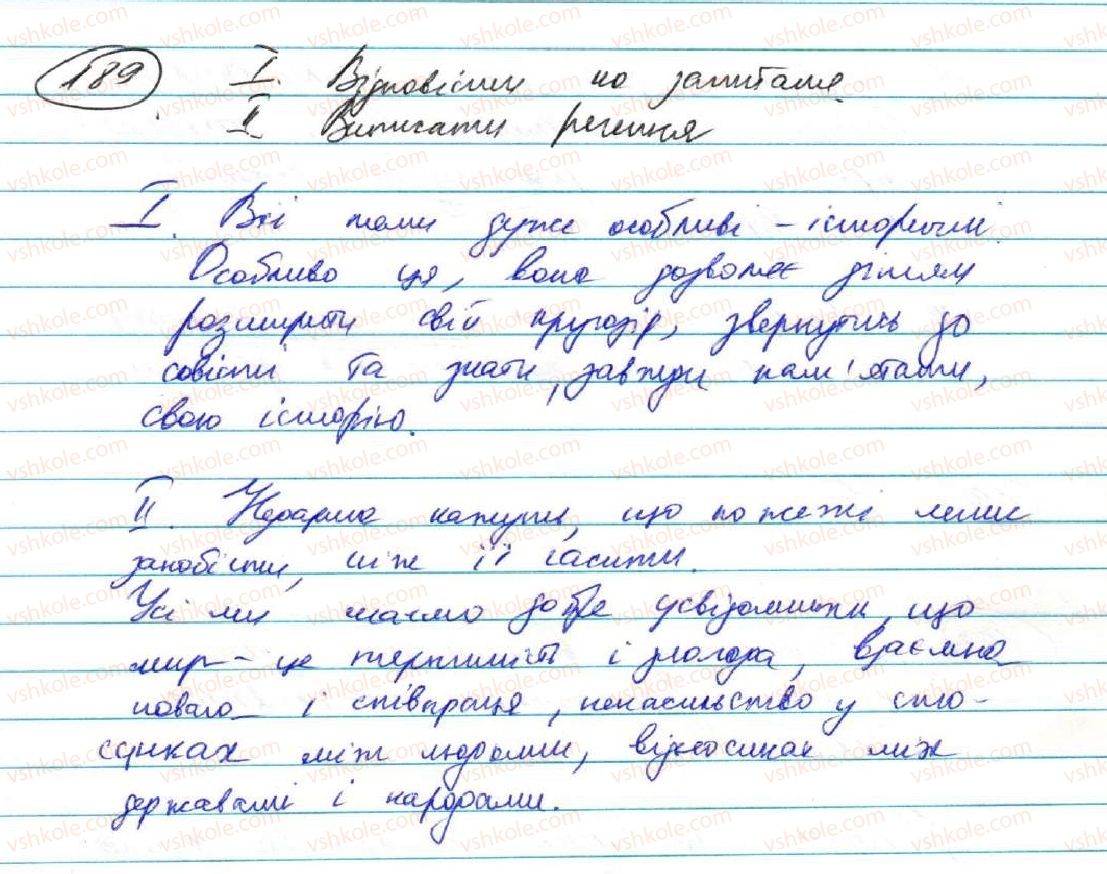 189
I. Відповісти на запитання.
II Виписати речення
I. Всі теми дуже особливі - історичні.
Особливо ця, вона дозволяє дітям
розширити свій кругозір, звернутись до
совісті та знати, завжди пам'ятати,
свою історію.
II. Недарма кажуть, що пожежі легше
запобігти, ніж її гасити.
Усі ми маємо добре усвідомити, що
мир - це терпимість і злагода, взаємна
повага і співпраця, ненасильство у сто-
сунках між людьми, відносинах між
державами і народами.
vshkole.com